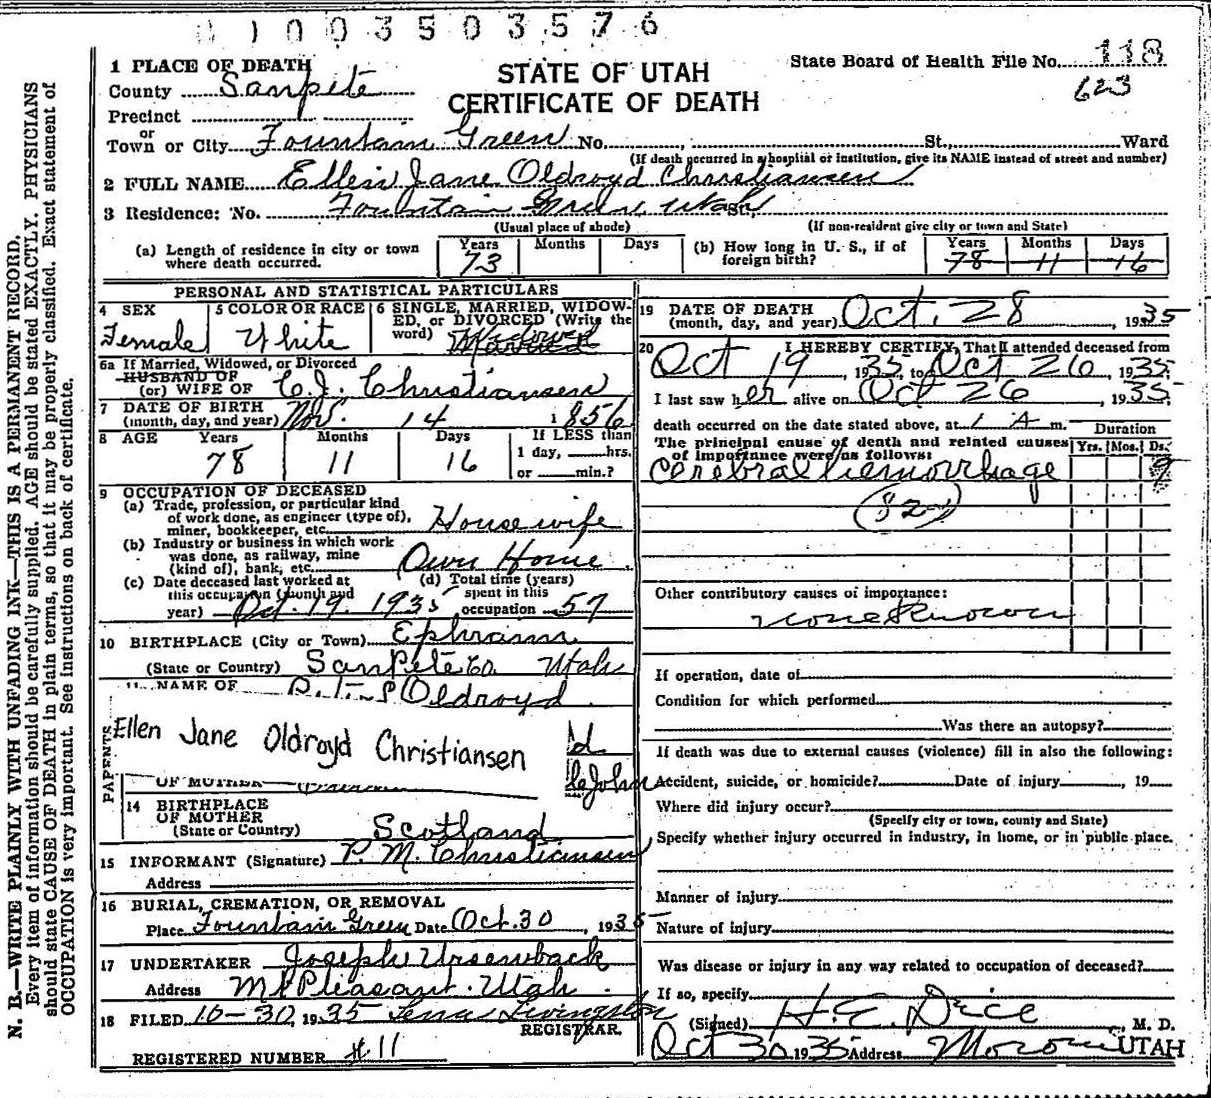 01003503576
1 PLACE OF DEATH
County Sanpete
Precinct
or
Town or City Fountain Green No. St., Ward
STATE OF UTAH
CERTIFICATE OF DEATH
State Board of Health File No. 118
623
(If death occurred in a hospital or institution, give its NAME instead of street and number)
2 FULL NAME Ellen Jane Oldroyd Christiansen
3 Residence: No. Fountain Green, Utah St.,
(Usual place of abode) (If non-resident give city or town and State)
(a) Length of residence in city or town where death occurred. Years 73 Months Days
(b) How long in U. S., if of foreign birth? Years 78 Months 11 Days 16
PERSONAL AND STATISTICAL PARTICULARS
4 SEX Female
5 COLOR OR RACE White
6 SINGLE, MARRIED, WIDOW-
ED, or DIVORCED (Write the
word) Widowed Married
6a If Married, Widowed, or Divorced
HUSBAND OF
(or) WIFE OF C.J. Christiansen
7 DATE OF BIRTH
(month, day, and year) Nov. 14 1856
8 AGE Years 78 Months 11 Days 16
If LESS than
1 day, hrs.
or min.?
9 OCCUPATION OF DECEASED
(a) Trade, profession, or particular kind
of work done, as engineer (type of),
miner, bookkeeper, etc. Housewife
(b) Industry or business in which work
was done, as railway, mine
(kind of), bank, etc. Own Home
(c) Date deceased last worked at
this occupation (month and
year) Oct. 19. 1935
(d) Total time (years)
spent in this
occupation 57
10 BIRTHPLACE (City or Town) Ephraim
(State or Country) Sanpete Co. Utah
11 NAME OF Oldroyd
PARENTS
Ellen Jane Oldroyd Christiansen
OF MOTHER
14 BIRTHPLACE
OF MOTHER
(State or Country) Scotland
15 INFORMANT (Signature) P. M. Christiansen
Address
16 BURIAL, CREMATION, OR REMOVAL
Place Fountain Green Date Oct. 30, 1935
17 UNDERTAKER Joseph Ursenback
Address Mt Pleasant. Utah.
18 FILED 10-30, 1935 Livingston
REGISTRAR.
REGISTERED NUMBER #11
19 DATE OF DEATH
(month, day, and year) Oct. 28, 1935
20 I HEREBY CERTIFY, That I attended deceased from
Oct 19, 1935, to Oct 26, 1935.
I last saw her alive on Oct 26, 1935.
death occurred on the date stated above, at 1 A m.
Duration
The principal cause of death and related causes
of importance were as follows: Yrs. Mos. Ds.
Cerebral hemorrhage 9
(82)
Other contributory causes of importance:
none Known
If operation, date of
Condition for which performed
Was there an autopsy?
If death was due to external causes (violence) fill in also the following:
Accident, suicide, or homicide? Date of injury, 19
Where did injury occur?
(Specify city or town, county and State)
Specify whether injury occurred in industry, in home, or in public place.
Manner of injury
Nature of injury
Was disease or injury in any way related to occupation of deceased?
If so, specify
(Signed) H. E. Dice, M. D.
Oct 30, 1935 Address Moroni UTAH
N. B.—WRITE PLAINLY WITH UNFADING INK—THIS IS A PERMANENT RECORD.
Every item of information should be carefully supplied. AGE should be stated EXACTLY. PHYSICIANS
should state CAUSE OF DEATH in plain terms, so that it may be properly classified. Exact statement of
OCCUPATION is very important. See instructions on back of certificate.